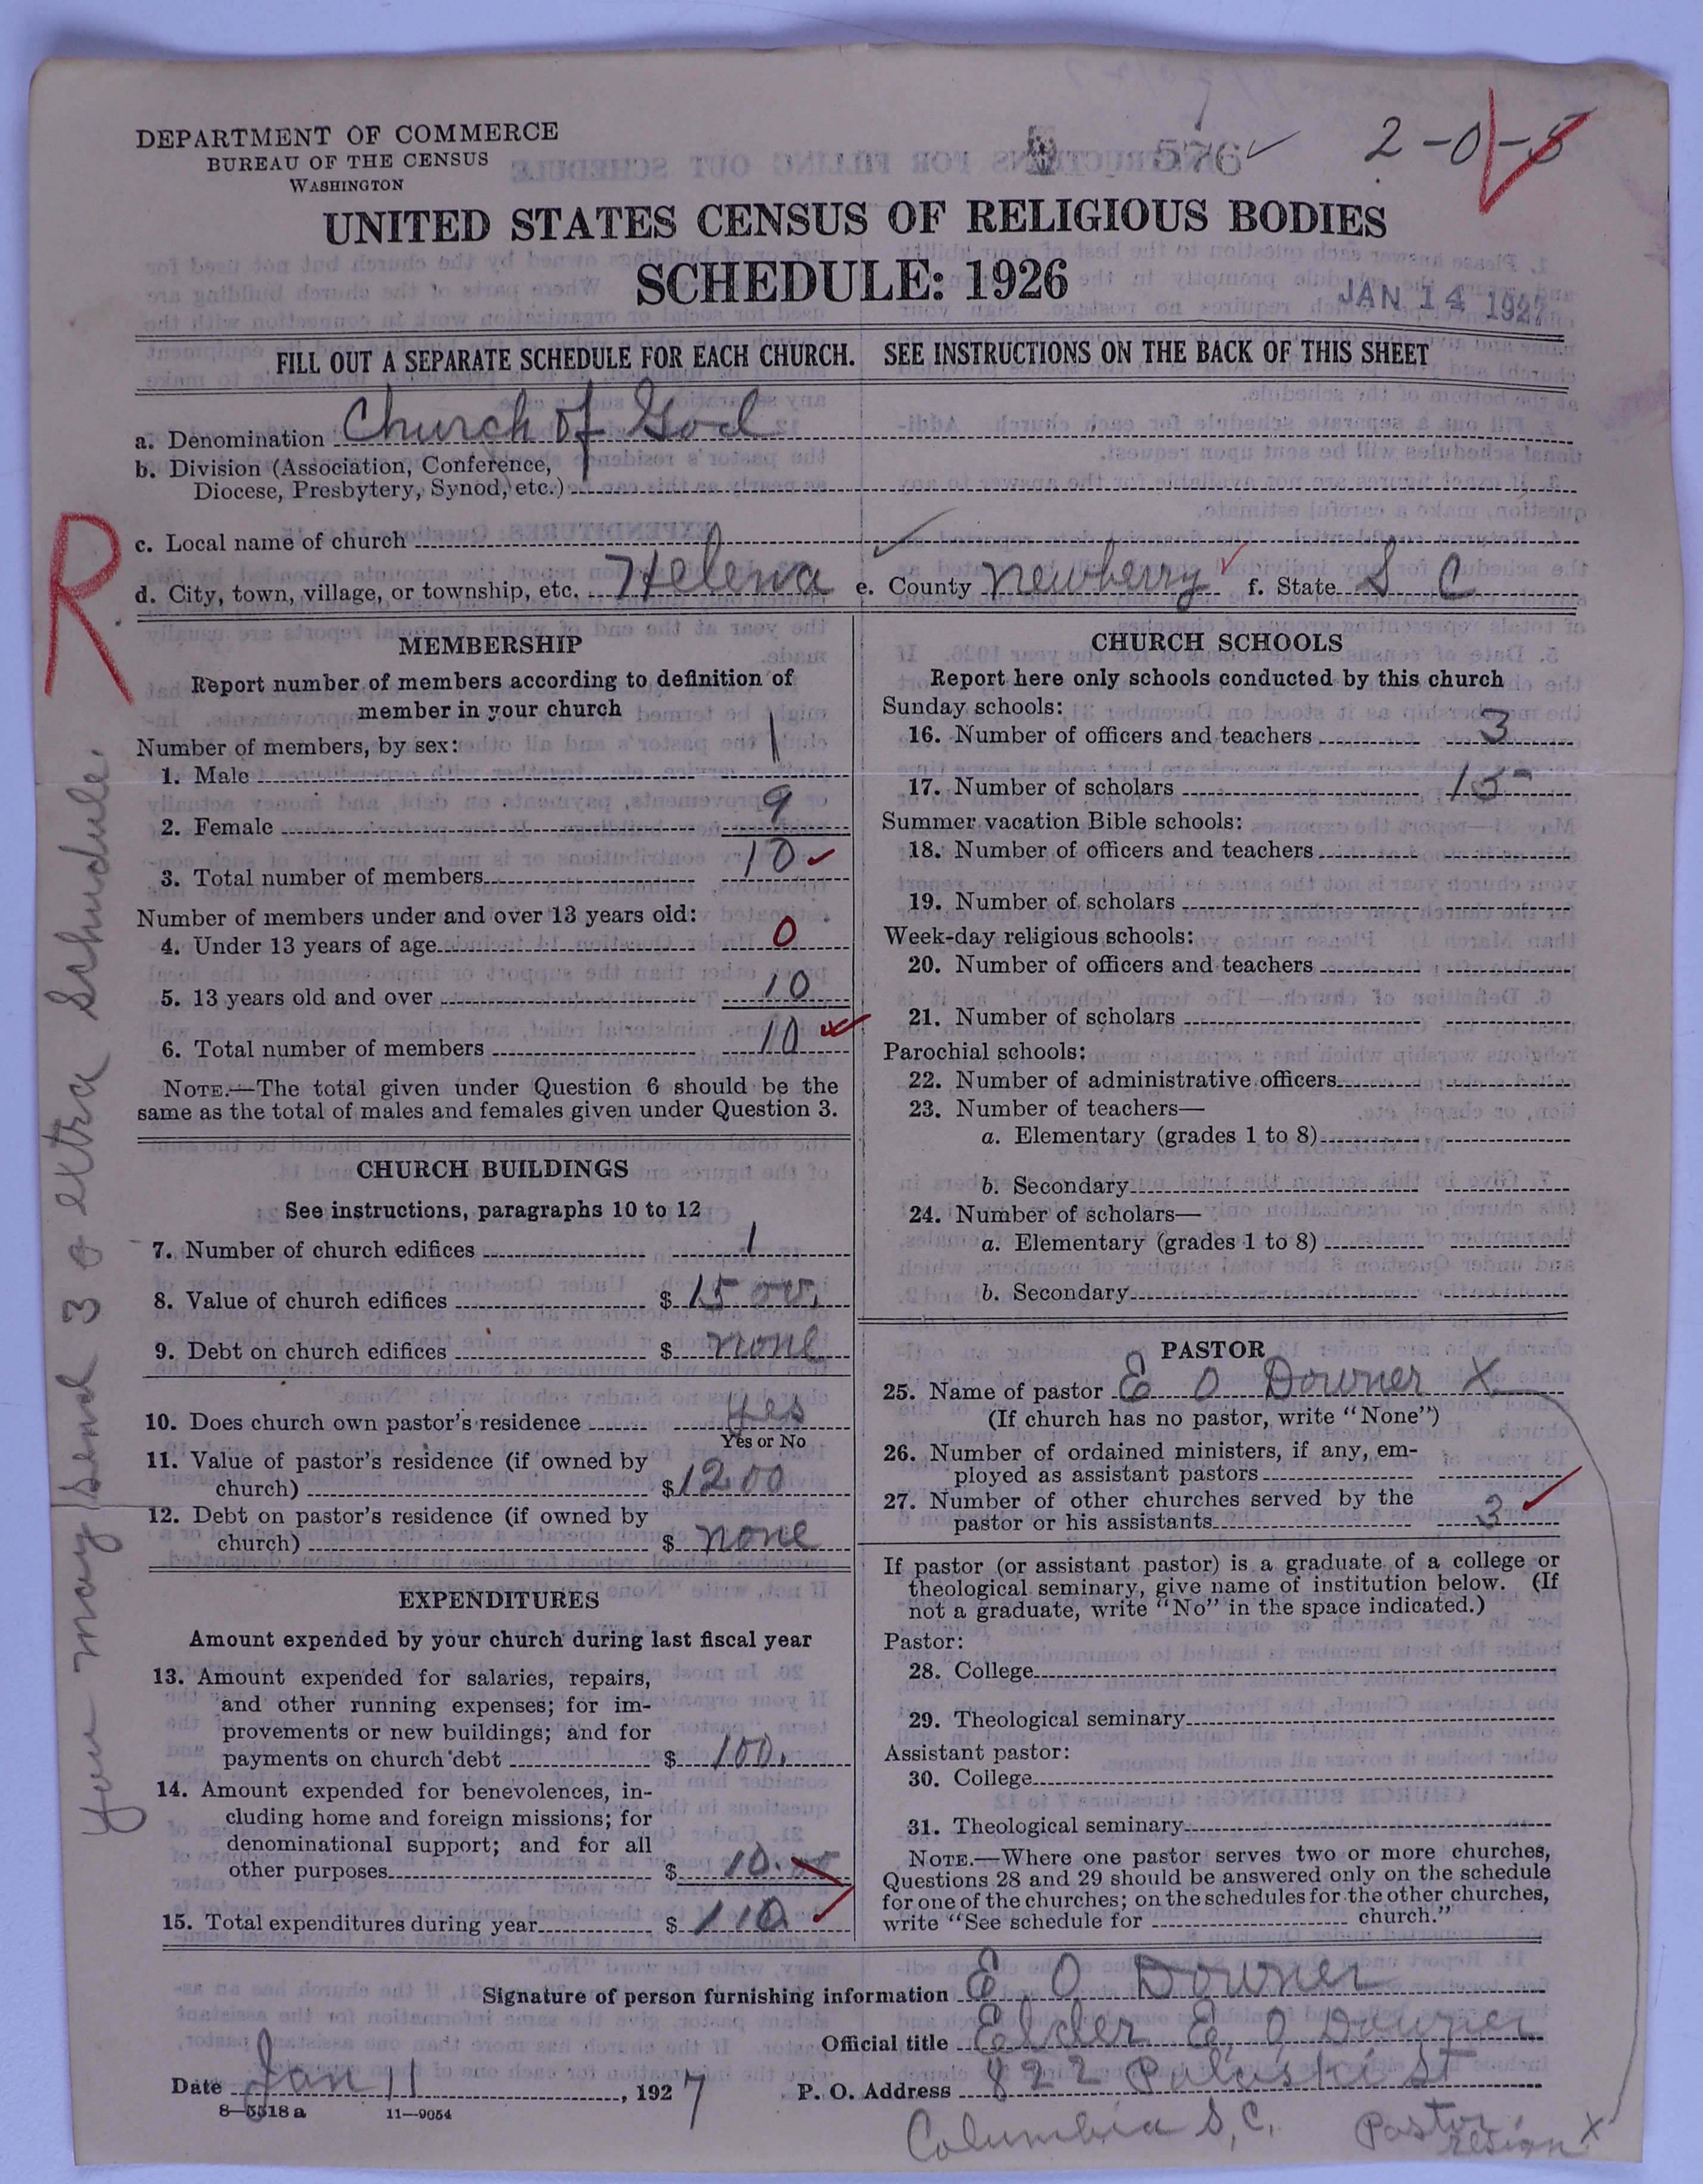 DEPARTMENT OF COMMERCE
BUREAU OF THE CENSUS
WASHINGTON
576
2-0-5
UNITED STATES CENSUS OF RELIGIOUS BODIES
SCHEDULE: 1926
JAN 14 1927
FILL OUT A SEPARATE SCHEDULE FOR EACH CHURCH. SEE INSTRUCTIONS ON THE BACK OF THIS SHEET
a. Denomination Church of God
b. Division (Association, Conference,
Diocese, Presbytery, Synod, etc.)
c. Local name of church
d. City, town, village, or township, etc. Helena e. County Newberry f. State S C
R
You may send 3 extra Schudule.
MEMBERSHIP
Report number of members according to definition of
member in your church
Number of members, by sex:
1. Male 1
2. Female 9
3. Total number of members 10
Number of members under and over 13 years old:
4. Under 13 years of age 0
5. 13 years old and over 10
6. Total number of members 10
NOTE.—The total given under Question 6 should be the
same as the total of males and females given under Question 3.
CHURCH BUILDINGS
See instructions, paragraphs 10 to 12
7. Number of church edifices 1
8. Value of church edifices $ 1500.
9. Debt on church edifices $ none
10. Does church own pastor's residence yes
Yes or No
11. Value of pastor's residence (if owned by
church) $ 1200
12. Debt on pastor's residence (if owned by
church) $ none
EXPENDITURES
Amount expended by your church during last fiscal year
13. Amount expended for salaries, repairs,
and other running expenses; for im-
provements or new buildings; and for
payments on church debt $ 100.
14. Amount expended for benevolences, in-
cluding home and foreign missions; for
denominational support; and for all
other purposes $ 10.00
15. Total expenditures during year $ 110
CHURCH SCHOOLS
Report here only schools conducted by this church
Sunday schools:
16. Number of officers and teachers 3
17. Number of scholars 15
Summer vacation Bible schools:
18. Number of officers and teachers
19. Number of scholars
Week-day religious schools:
20. Number of officers and teachers
21. Number of scholars
Parochial schools:
22. Number of administrative officers
23. Number of teachers—
a. Elementary (grades 1 to 8)
b. Secondary
24. Number of scholars—
a. Elementary (grades 1 to 8)
b. Secondary
PASTOR
25. Name of pastor E O Downer X
(If church has no pastor, write "None")
26. Number of ordained ministers, if any, em-
ployed as assistant pastors
27. Number of other churches served by the
pastor or his assistants 3
If pastor (or assistant pastor) is a graduate of a college or
theological seminary, give name of institution below. (If
not a graduate, write "No" in the space indicated.)
Pastor:
28. College
29. Theological seminary
Assistant pastor:
30. College
31. Theological seminary
NOTE.—Where one pastor serves two or more churches,
Questions 28 and 29 should be answered only on the schedule
for one of the churches; on the schedules for the other churches,
write "See schedule for church."
Signature of person furnishing information E O Downer
Official title Elder E O Downer
Date Jan 11, 1927 P. O. Address 822 Pulaski St
8—5518 a 11—9054
Columbia S, C,
Pastor
resign X